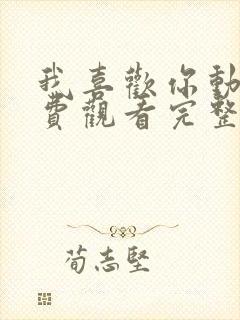 我喜歡你動
費觀看完整
荀志堅